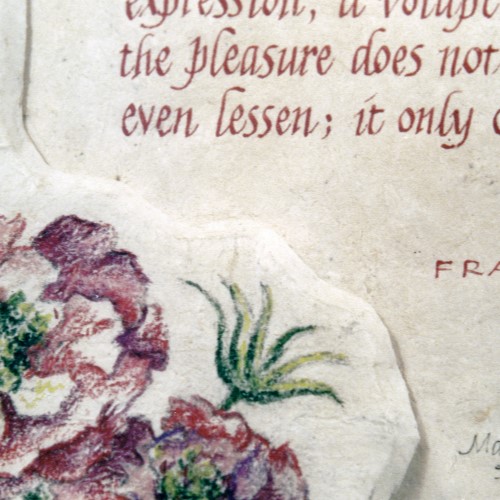 expression, a
the pleasure does not
even lessen; it only